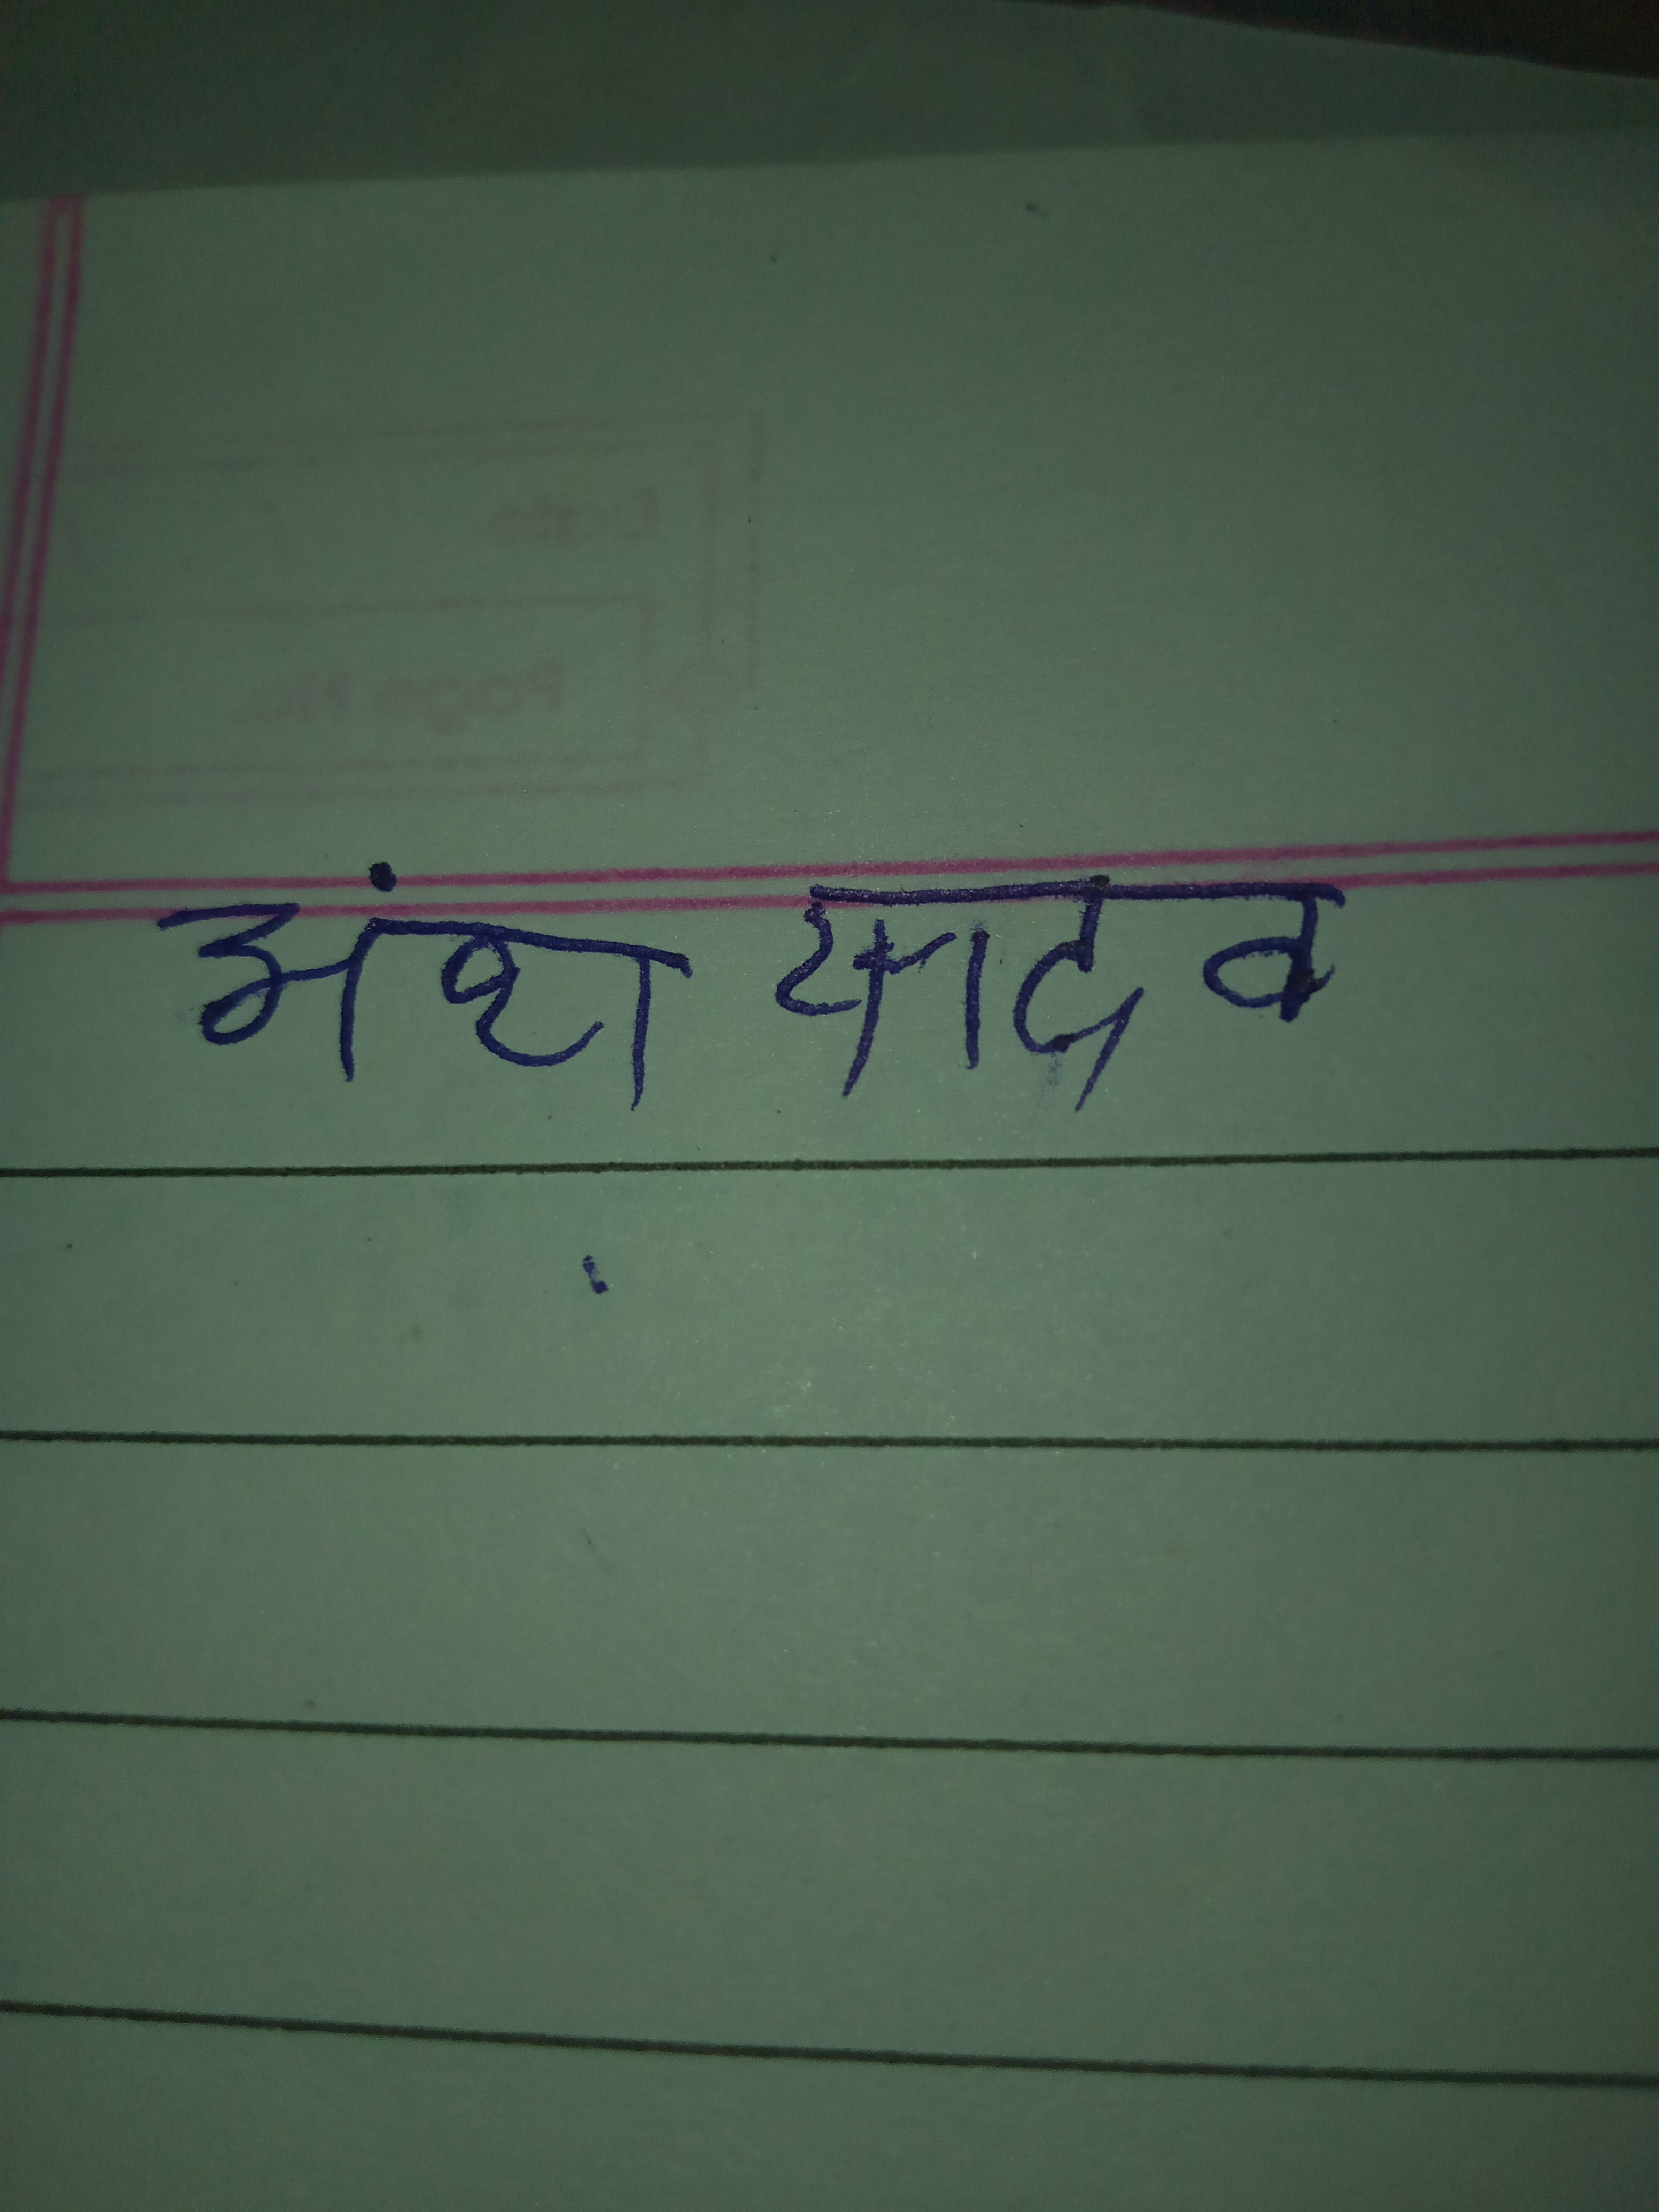 Date / /
Page No.
अंश यादव